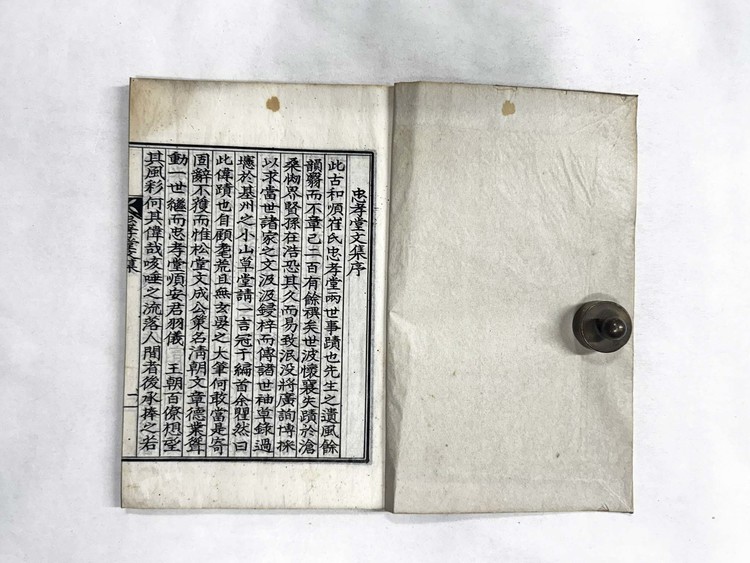 忠孝堂文集序
此古和順崔氏忠孝堂兩世事蹟也先生之遺風餘
韻翳而不章已二百有餘禩矣世波懷襄失蹟於滄
桑傲界賢孫在浩恐其久而易致泯沒將廣詢博採
以求當世諸家之文汲汲鋟梓而傳諸世袖草錄過
於基州之小山草堂請一言冠于編首余瞿然曰
此偉蹟也自顧耄荒且無友吳之大筆何敢當是寄
固辭不獲而惟松堂文成公策名淸朝文章德業聳
動一世繼而忠孝堂順安君羽儀 王朝百僚想望
其風彩何其偉哉咳唾之流落人間者後承捧之若
忠孝堂文集
一